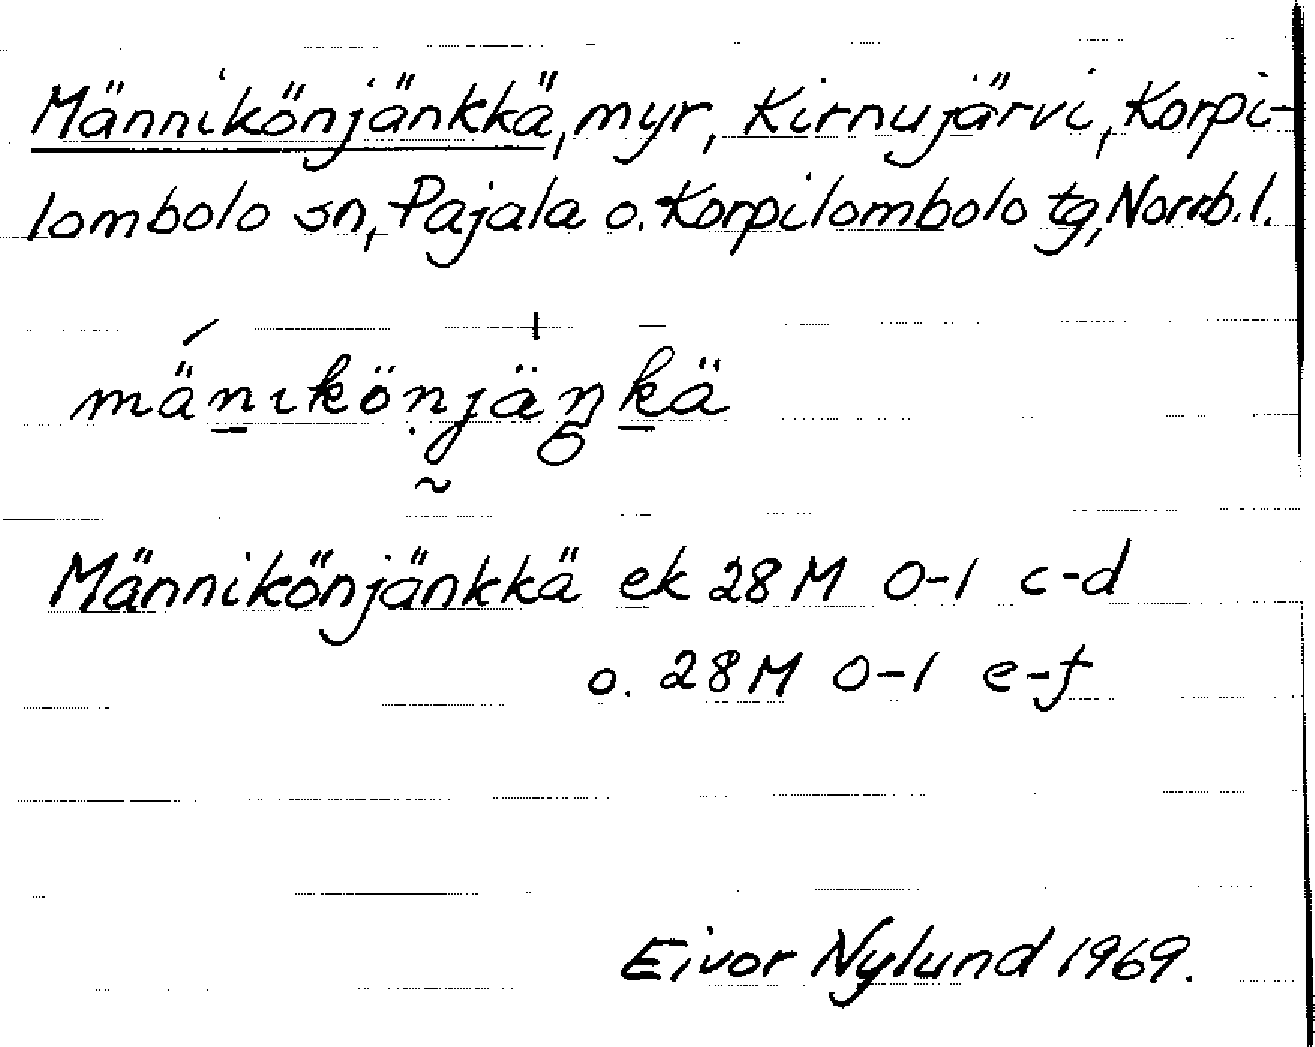 Männikönjänkkä, myr, Kirnujärvi, Korpi-
lombolo sn, Pajala o. Korpilombolo tg, Norrb. l.
mänıkönjäŋkä
Männikönjänkkä ek 28 M 0-1 c-d
o. 28 M 0-1 e-f
Eivor Nylund 1969.